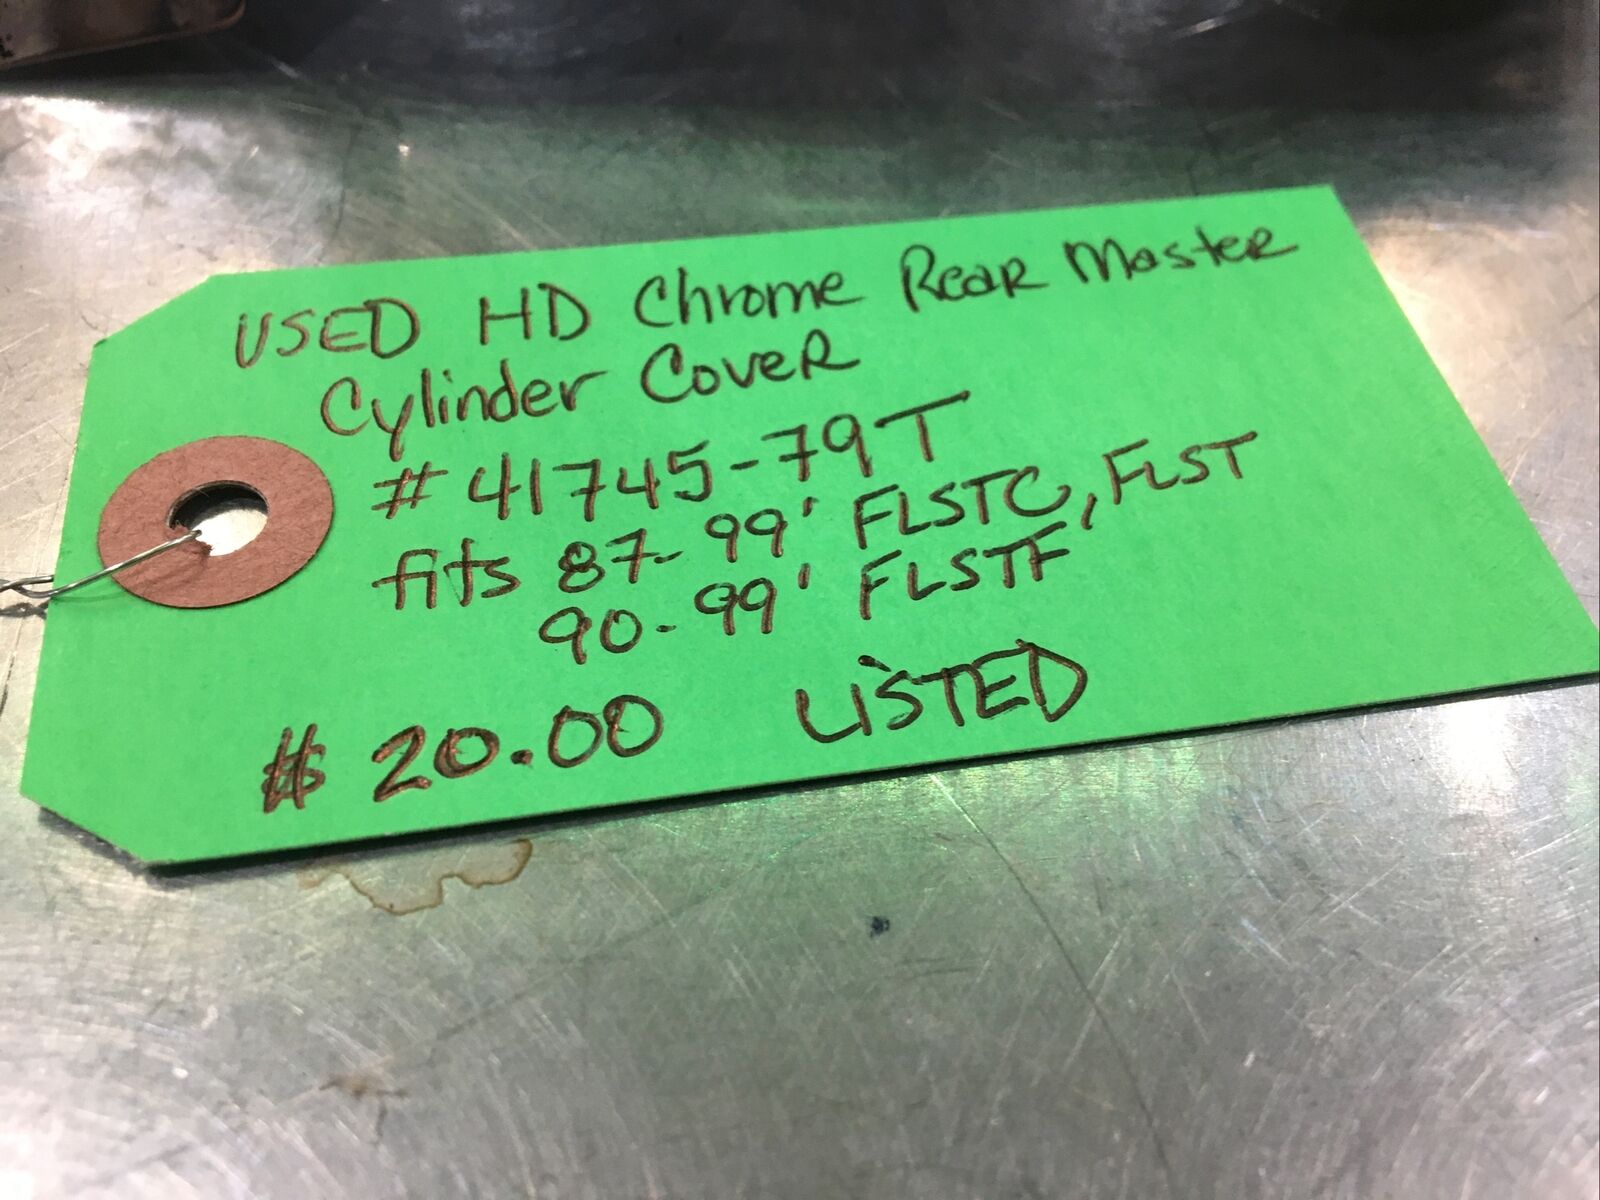 USED HD Chrome Rear Master
Cylinder Cover
# 41745-79T
fits 87-99' FLSTC, FLST
90-99' FLSTF
$ 20.00 LISTED